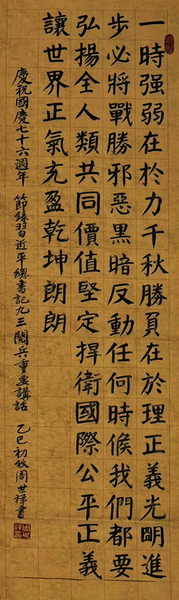 一時强弱在於力千秋勝負在於理正義光明進
步必將戰勝邪惡黑暗反動任何時候我們都要
弘揚全人類共同價值堅定捍衛國際公平正義
讓世界正氣充盈乾坤朗朗
慶祝國慶七十六週年 節錄習近平總書記九三閱兵重要講話 乙巳初秋周世祿書